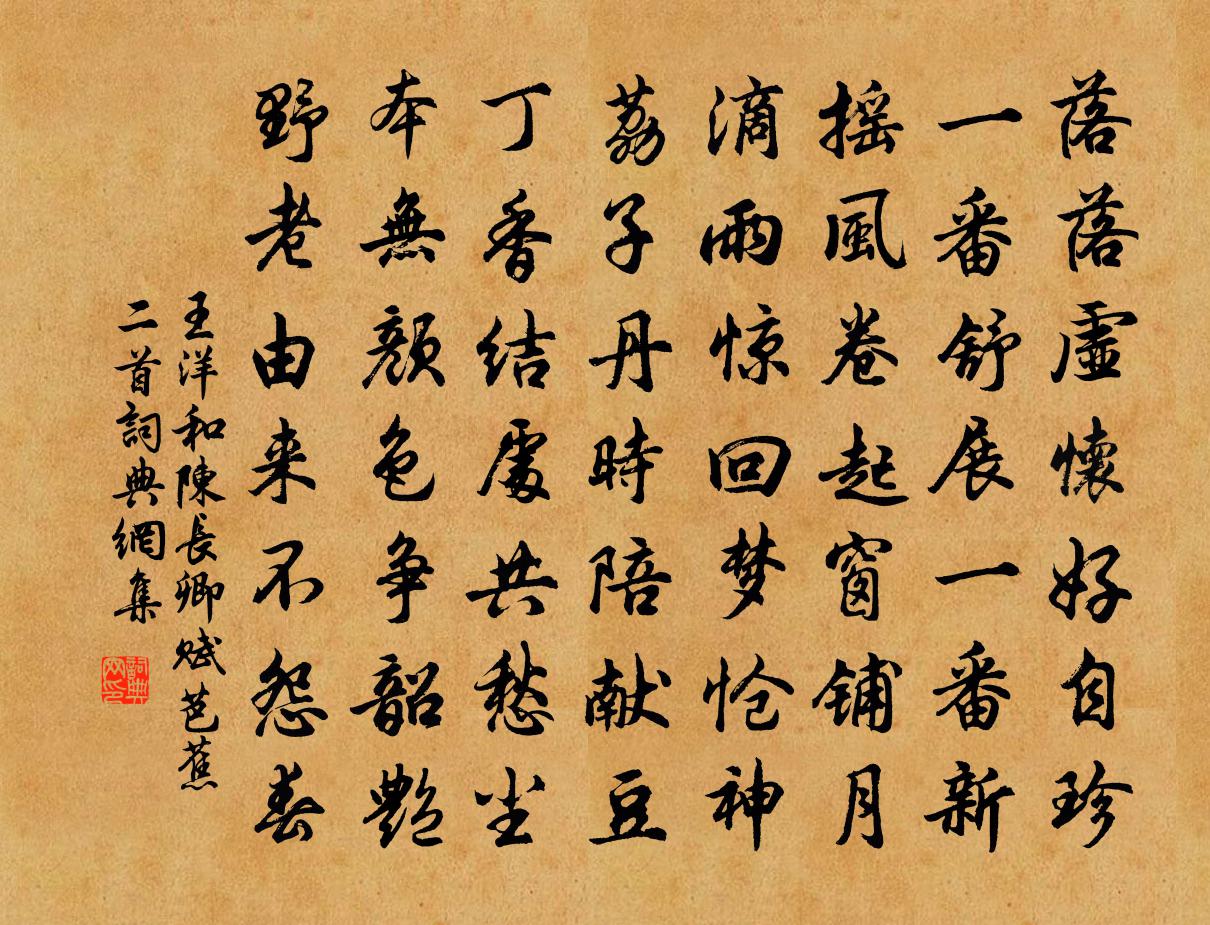 落落虛懷好自珍
一番舒展一番新
摇風卷起窗铺月
滴雨惊回梦怆神
荔子丹時陪献豆
丁香结處共愁尘
本無顏色争韶艷
野老由来不怨春
王洋和陳長卿賦芭蕉
二首詞典網集
詞典
网印